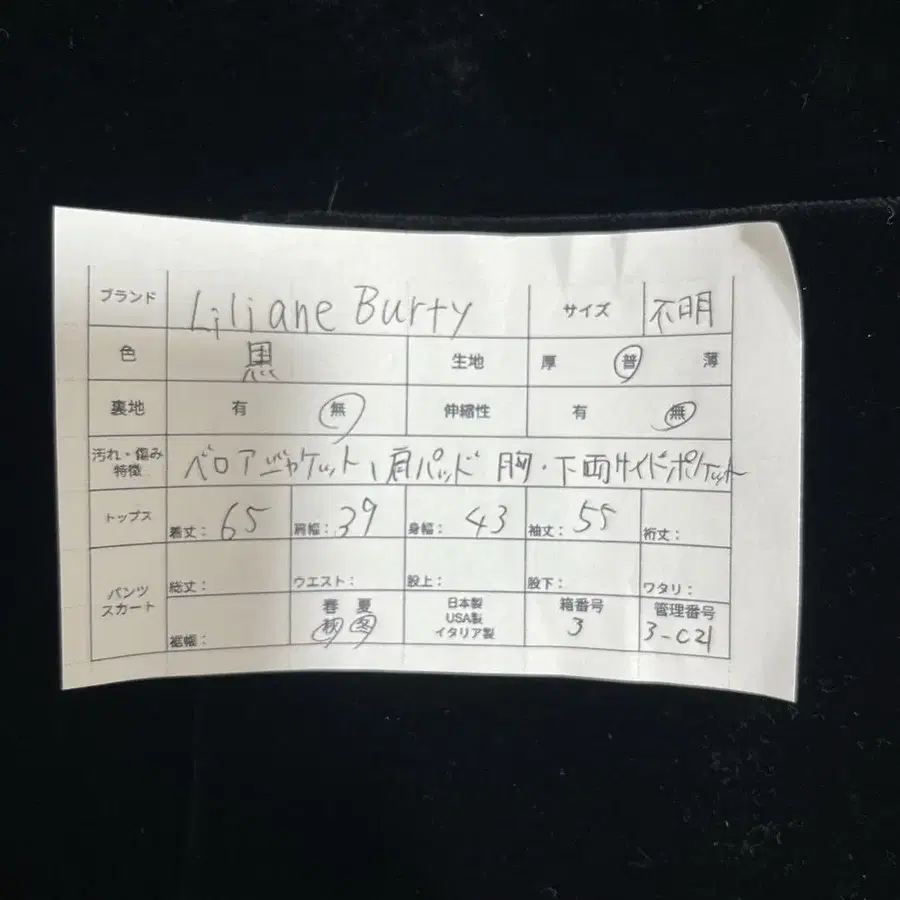 ブランド Liliane Burty サイズ 不明
色 黒 生地 厚 普 薄
裏地 有 無 伸縮性 有 無
汚れ・傷み
特徴 ベロアジャケット、肩パッド 胸・下両サイドポケット
トップス 着丈: 65 肩幅: 39 身幅: 43 袖丈: 55 裄丈:
パンツ
スカート 総丈: ウエスト: 股上: 股下: ワタリ:
裾幅: 春 夏 秋 冬 日本製 USA製 イタリア製 箱番号 3 管理番号 3-C21